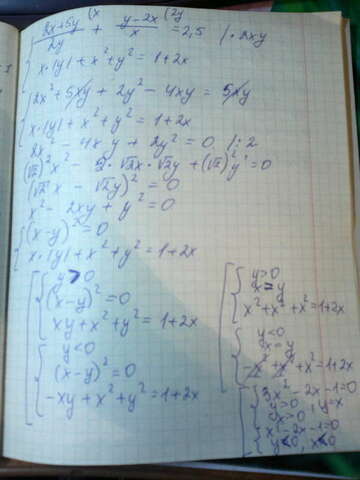 (2x+5y)/2y (x + (y-2x)/x (2y = 2,5 | · 2xy
x·|y| + x² + y² = 1+2x
2x² + 5xy + 2y² - 4xy = 5xy
x·|y| + x² + y² = 1+2x
2x² - 4xy + 2y² = 0 |:2
(√2)²x² - 2·√2x·√2y + (√2)²y² = 0
(√2x - √2y)² = 0
x² - 2xy + y² = 0
(x-y)² = 0
x·|y| + x² + y² = 1+2x
y > 0
(x-y)² = 0
xy + x² + y² = 1+2x
y < 0
(x-y)² = 0
-xy + x² + y² = 1+2x
y > 0
x = y
x² + x² + x² = 1+2x
y < 0
x = y
-x² + x² + x² - 1+2x
3x² - 2x - 1 = 0
y > 0, y = x
x > 0
x² - 2x - 1 = 0
y < 0, x < 0